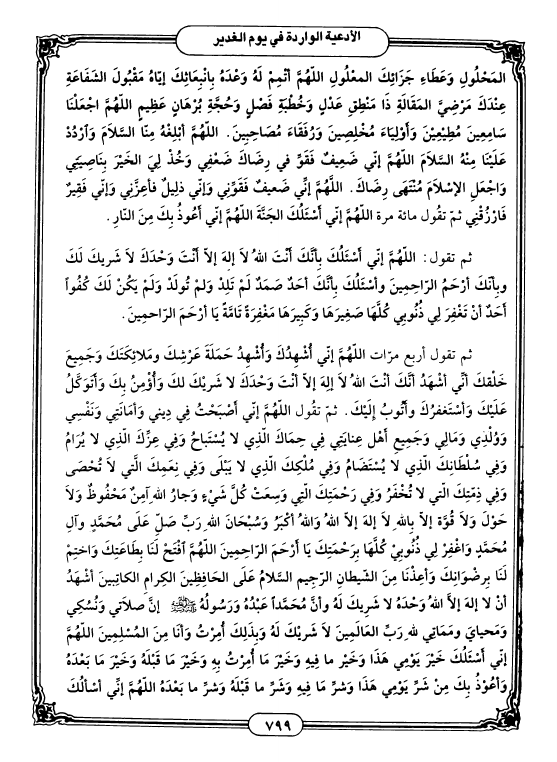 الأدعية الواردة في يوم الغدير
المَحْلُولِ وَعَطَاءِ جَزَائِكَ المعْلُولِ اللَّهُمَّ أتْمِمْ لَهُ وَعْدَهُ بِانْبِعَائِكَ إيَّاهُ مَقْبُولَ الشَّفَاعَةِ
عِنْدَكَ مَرْضِيَّ المَقَالَةِ ذَا مَنْطِقِ عَدْلٍ وَخُطْبَةِ فَصْلٍ وَحُجَّةِ بُرْهَانٍ عَظِيمٍ اللَّهُمَّ اجْعَلْنَا
سَامِعِينَ مُطِيعِيْنَ وَأَوْلِيَاءَ مُخْلِصِينَ وَرُفَقَاءَ مُصَاحِبِينَ. اللَّهُمَّ أَبْلِغْهُ مِنَّا السَّلاَمَ وَآرْدُدْ
عَلَيْنَا مِنْهُ السَّلاَمَ اللَّهُمَّ إنِّي ضَعِيفٌ فَقَوِّ في رِضَاكَ ضَعْفِي وَخُذْ لِيَ الخَيْرَ بِنَاصِيَتِي
وَاجْعَلِ الإسْلاَمَ مُنْتَهَى رِضَاكَ. اللَّهُمَّ إنِّي ضَعيفٌ فَقَوِّنِي وَإنِّي ذلِيلٌ فأعِزَّنِي وَإنِّي فَقِيرٌ
فَارْزُقْنِي ثمّ تقُول مائة مرة اللَّهُمَّ إنِّي أَسْئَلُكَ الجَنَّةَ اللَّهُمَّ إنِّي أَعُوذُ بِكَ مِنَ النَّارِ.
ثم تقول: اللَّهُمَّ إنِّي أَسْئَلُكَ بِأَنَّكَ أَنْتَ اللهُ لاَ إلهَ إلاَّ أَنْتَ وَحْدَكَ لاَ شَرِيكَ لَكَ
وبِأنَّكَ أَرْحَمُ الرَّاحِمِينَ وأَسْئَلُكَ بِأَنَّكَ أَحَدٌ صَمَدٌ لَمْ تَلِدْ وَلَمْ تُولَدْ وَلَمْ يَكُنْ لَكَ كُفُواً
أَحَدٌ أنْ تَغْفِرَ لِي ذُنُوبِي كُلَّهَا صَغِيرَهَا وَكَبِيرَهَا مَغْفِرَةً تَامَّةً يَا أَرْحَمَ الرَّاحمِينَ.
ثم تقول أربع مرّات اللَّهُمَّ إنِّي أُشْهِدُكَ وَأُشْهِدُ حَمَلَةَ عَرْشِكَ ومَلائِكَتَكَ وَجَمِيعَ
خَلْقكَ أنِّي أَشْهَدُ أنَّكَ أنْتَ اللهُ لاَ إلهَ إلاَّ أَنْتَ وَحْدَكَ لا شَرِيْكَ لكَ وَأُؤْمِنُ بِكَ وَأَتَوَكَّلُ
عَلَيْكَ وَأَسْتَغفرُكَ وأتُوبُ إلَيْكَ. ثمّ تقُول اللَّهُمَّ إنِّي أَصْبَحْتُ فِي دِيني وَأمَانَتِي وَنَفْسِي
وَوُلْذِي وَمَالِي وَجَمِيعِ أَهْلِ عِنايَتِي فِي حِمَاكَ الَّذِي لا يُسْتَباحُ وَفِي عِزِّكَ الَّذِي لا يُرَامُ
وَفِي سُلْطَانِكَ الَّذِي لاَ يُسْتَضَامُ وَفِي مُلْكِكَ الَّذِي لا يَبْلَى وَفِي نِعَمِكَ الَّتِي لاَ تُحْصَى
وَفِي ذِمَّتِكَ الَّتي لا تُخْفَرُ وَفِي رَحْمَتِكَ الَّتِي وَسِعَتْ كُلَّ شَيْءٍ وَجارُ اللهِ آمِنٌ مَحْفُوظٌ وَلاَ
حَوْلَ وَلاَ قُوَّةَ إلاَّ بِاللهِ لاَ إلهَ إلاَّ اللهُ وَاللهُ أَكْبَرُ وَسُبْحَانَ اللهِ رَبِّ صَلِّ عَلَى مُحَمَّدٍ وآلِ
مُحَمَّدٍ وَاغْفِرْ لِي ذُنُوبِيْ كُلَّهَا بِرَحْمَتِكَ يَا أَرْحَمَ الرَّاحِمِينَ اللَّهُمَّ آفْتَحْ لَنَا بِطَاعَتِكَ وَاخْتِمْ
لَنَا بِرِضْوَانِكَ وَأَعِذْنَا مِنَ الشَّيطانِ الرَّجِيمِ السَّلاَمُ عَلَى الحَافِظَينِ الكِرامِ الكاتِبينَ أَشْهَدُ
أنْ لاَ إلهَ إلاَّ اللهُ وَحْدَهُ لا شريكَ لَهُ وأنَّ مُحَمَّداً عَبْدُهُ وَرَسُولُهُ ﷺ إنَّ صلاَتي وَنُسُكِي
وَمَحيايَ ومَمَاتِي للهِ رَبِّ العَالَمِينَ لاَ شَرِيْكَ لَهُ وَبِذلِكَ أُمِرْتُ وَأنَا مِنَ المُسْلِمِينَ اللَّهُمَّ
إنِّي أَسْئَلُكَ خَيْرَ يَوْمِي هَذَا وَخَيْرَ ما فِيهِ وَخَيْرَ مَا أُمِرْتُ بِهِ وَخَيْرَ مَا قَبْلَهُ وَخَيْرَ مَا بَعْدَهُ
وَأعُوْذُ بِكَ مِنْ شَرِّ يَوْمِي هَذَا وَشَرِّ مَا فِيهِ وَشَرِّ ما قَبْلَهُ وَشَرِّ ما بَعْدَهُ اللَّهُمَّ إنِّي أسْألُكَ
٧٩٩